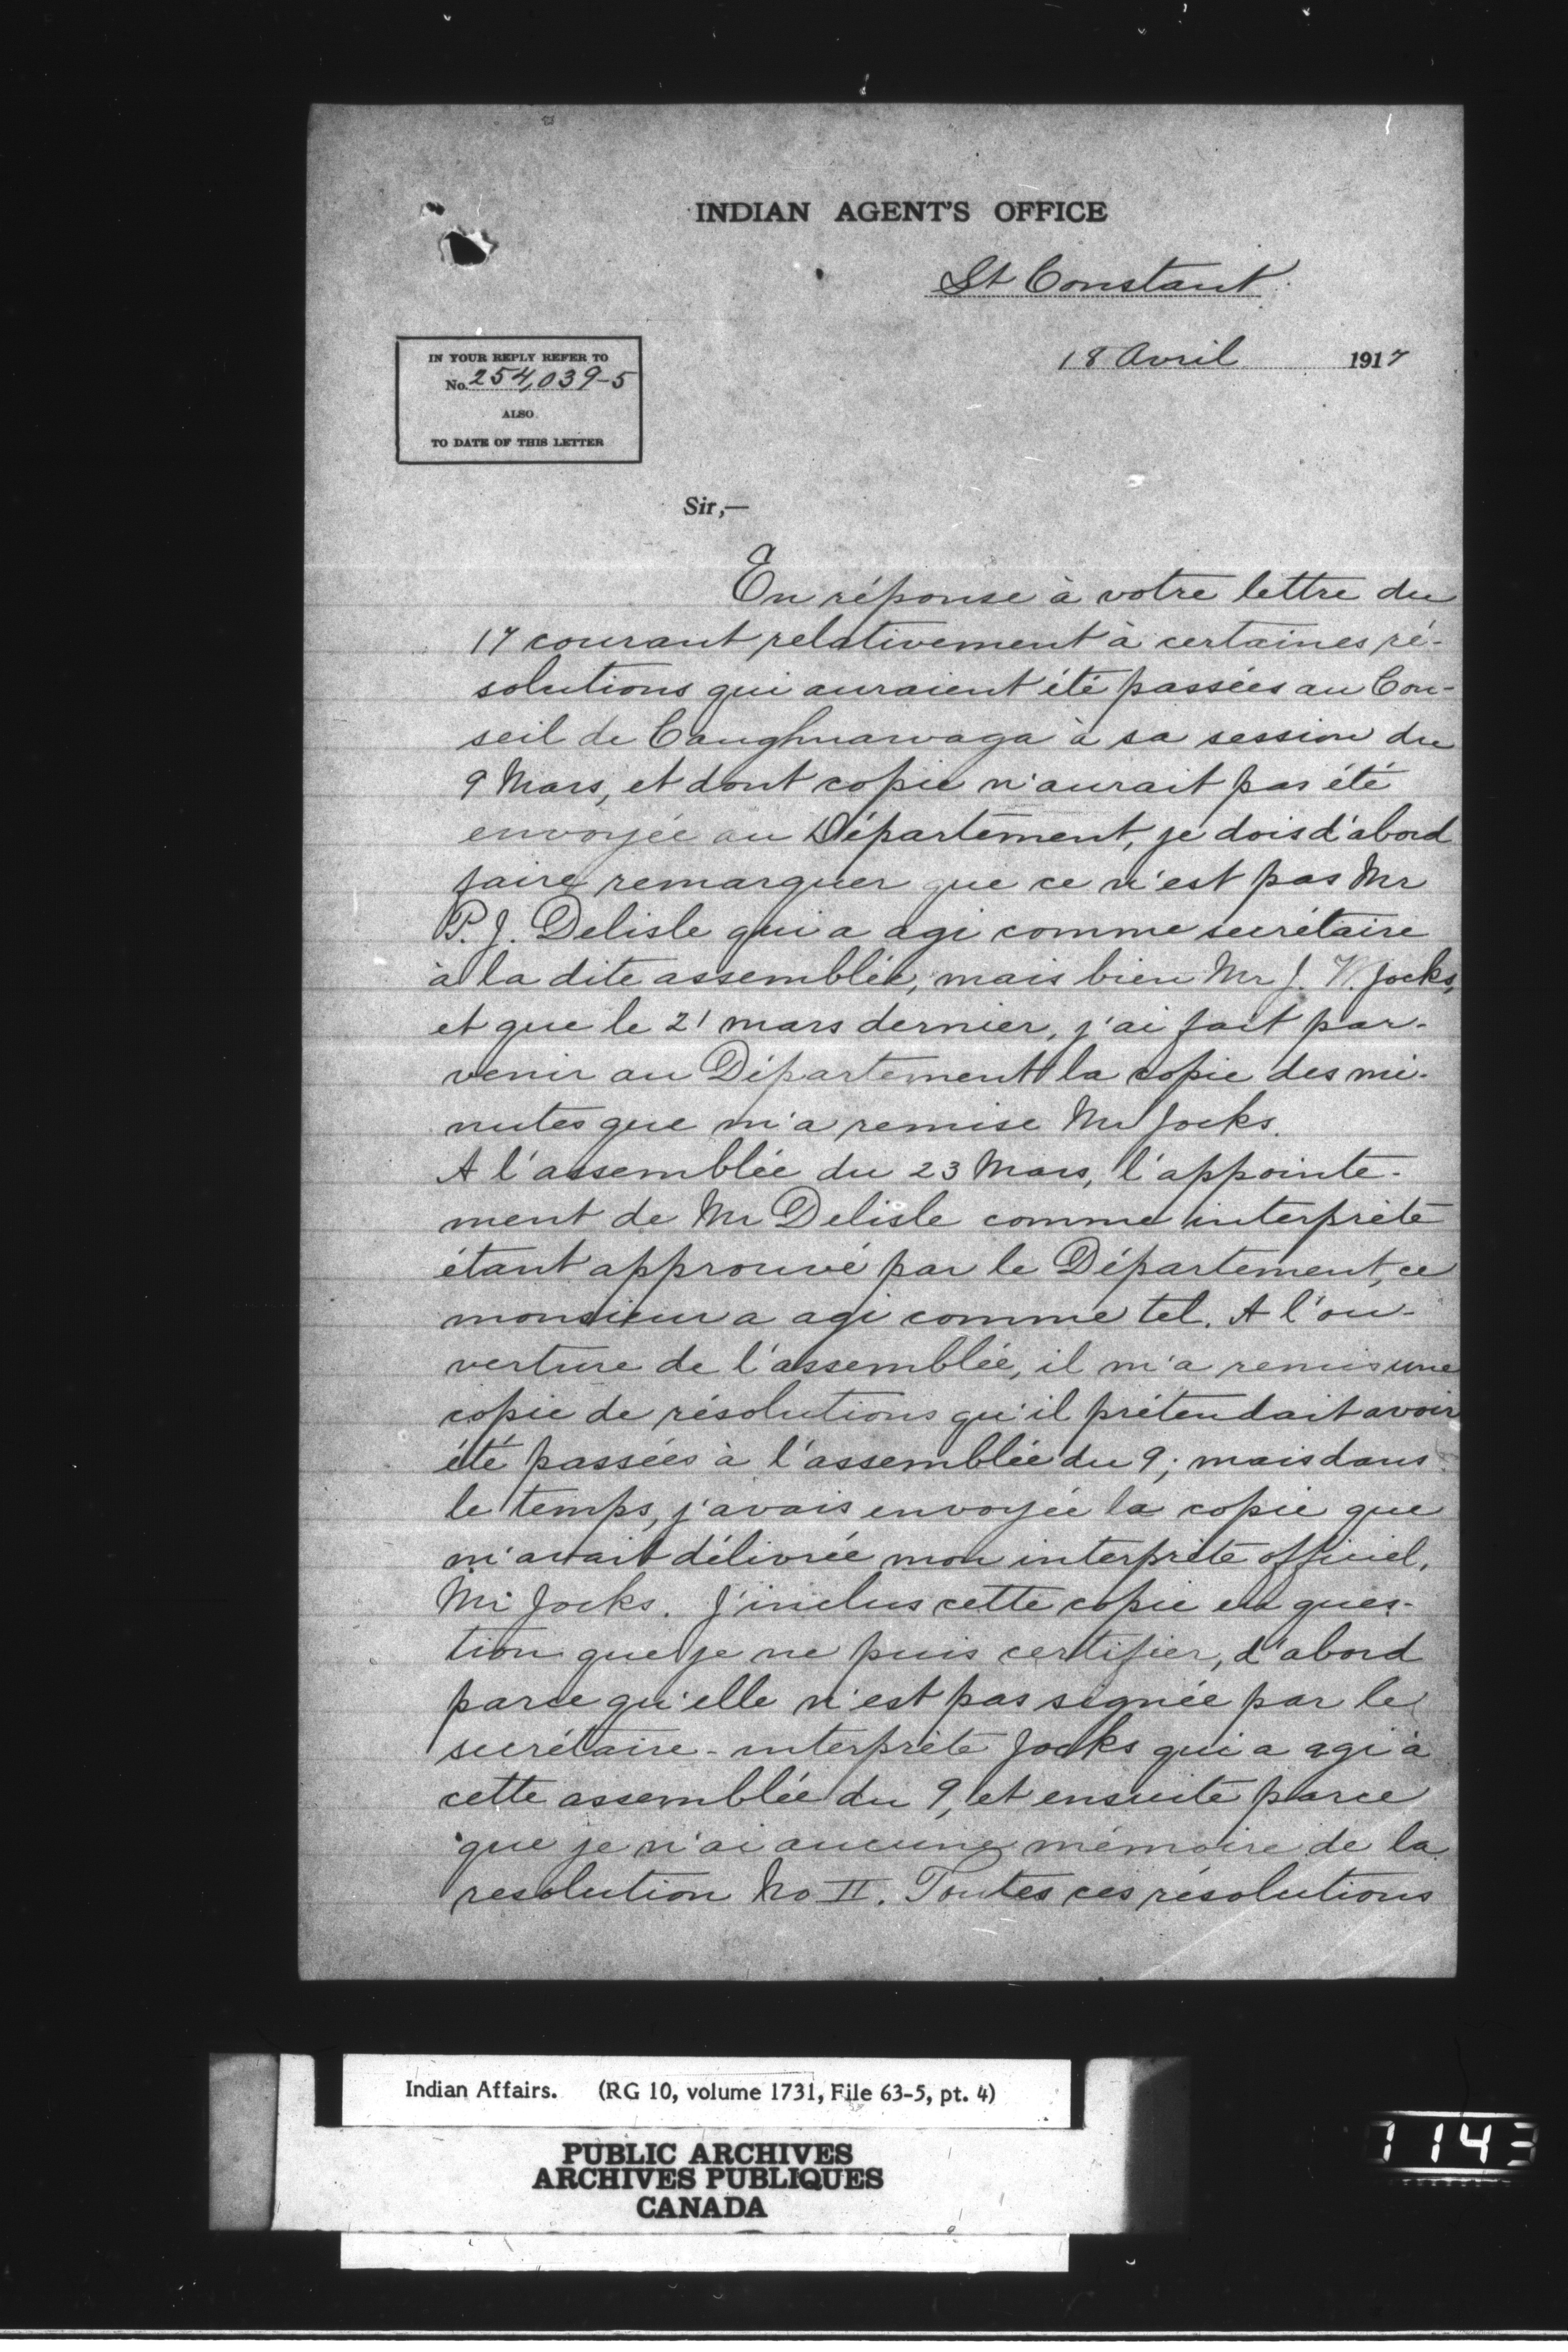 INDIAN AGENT'S OFFICE
St Constant
18 Avril 1917
IN YOUR REPLY REFER TO
No. 254,039-5
ALSO
TO DATE OF THIS LETTER
Sir,—
En réponse à votre lettre du
17 courant relativement à certaines ré-
solutions qui auraient été passées au Con-
seil de Caughnawaga à sa session du
9 Mars, et dont copie n'aurait pas été
envoyée au Département, je dois d'abord
faire remarquer que ce n'est pas Mr
P. J. Delisle qui a agi comme secrétaire
à la dite assemblée, mais bien Mr J. W. Jocks,
et que le 21 mars dernier, j'ai fait par-
venir au Département la copie des mi-
nutes que m'a remise Mr Jocks.
A l'assemblée du 23 Mars, l'appointe-
ment de Mr Delisle comme interprète
étant approuvé par le Département, ce
monsieur a agi comme tel. A l'ou-
verture de l'assemblée, il m'a remis une
copie de résolutions qu'il prétendait avoir
été passées à l'assemblée du 9; mais dans
le temps, j'avais envoyée la copie que
m'avait délivrée mon interprète officiel,
Mr Jocks. J'inclus cette copie en ques-
tion que je ne puis certifier, d'abord
parce qu'elle n'est pas signée par le
secrétaire-interprète Jocks qui a agi à
cette assemblée du 9, et ensuite parce
que je n'ai aucune mémoire de la
resolution No II. Toutes ces résolutions
Indian Affairs. (RG 10, volume 1731, File 63-5, pt. 4)
PUBLIC ARCHIVES
ARCHIVES PUBLIQUES
CANADA
1143